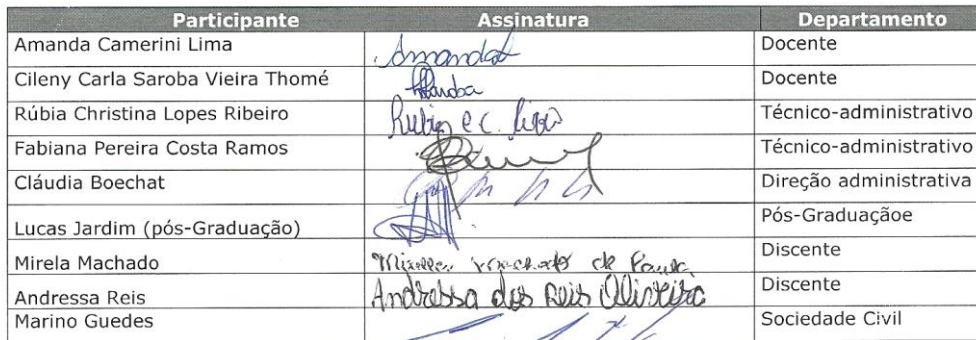 Participante Assinatura Departamento
Amanda Camerini Lima Amanda Docente
Cileny Carla Saroba Vieira Thomé Docente
Rúbia Christina Lopes Ribeiro Técnico-administrativo
Fabiana Pereira Costa Ramos Técnico-administrativo
Cláudia Boechat Direção administrativa
Lucas Jardim (pós-Graduação) Pós-Graduaçãoe
Mirela Machado Machado de Paula Discente
Andressa Reis Andressa dos Reis Oliveira Discente
Marino Guedes Sociedade Civil